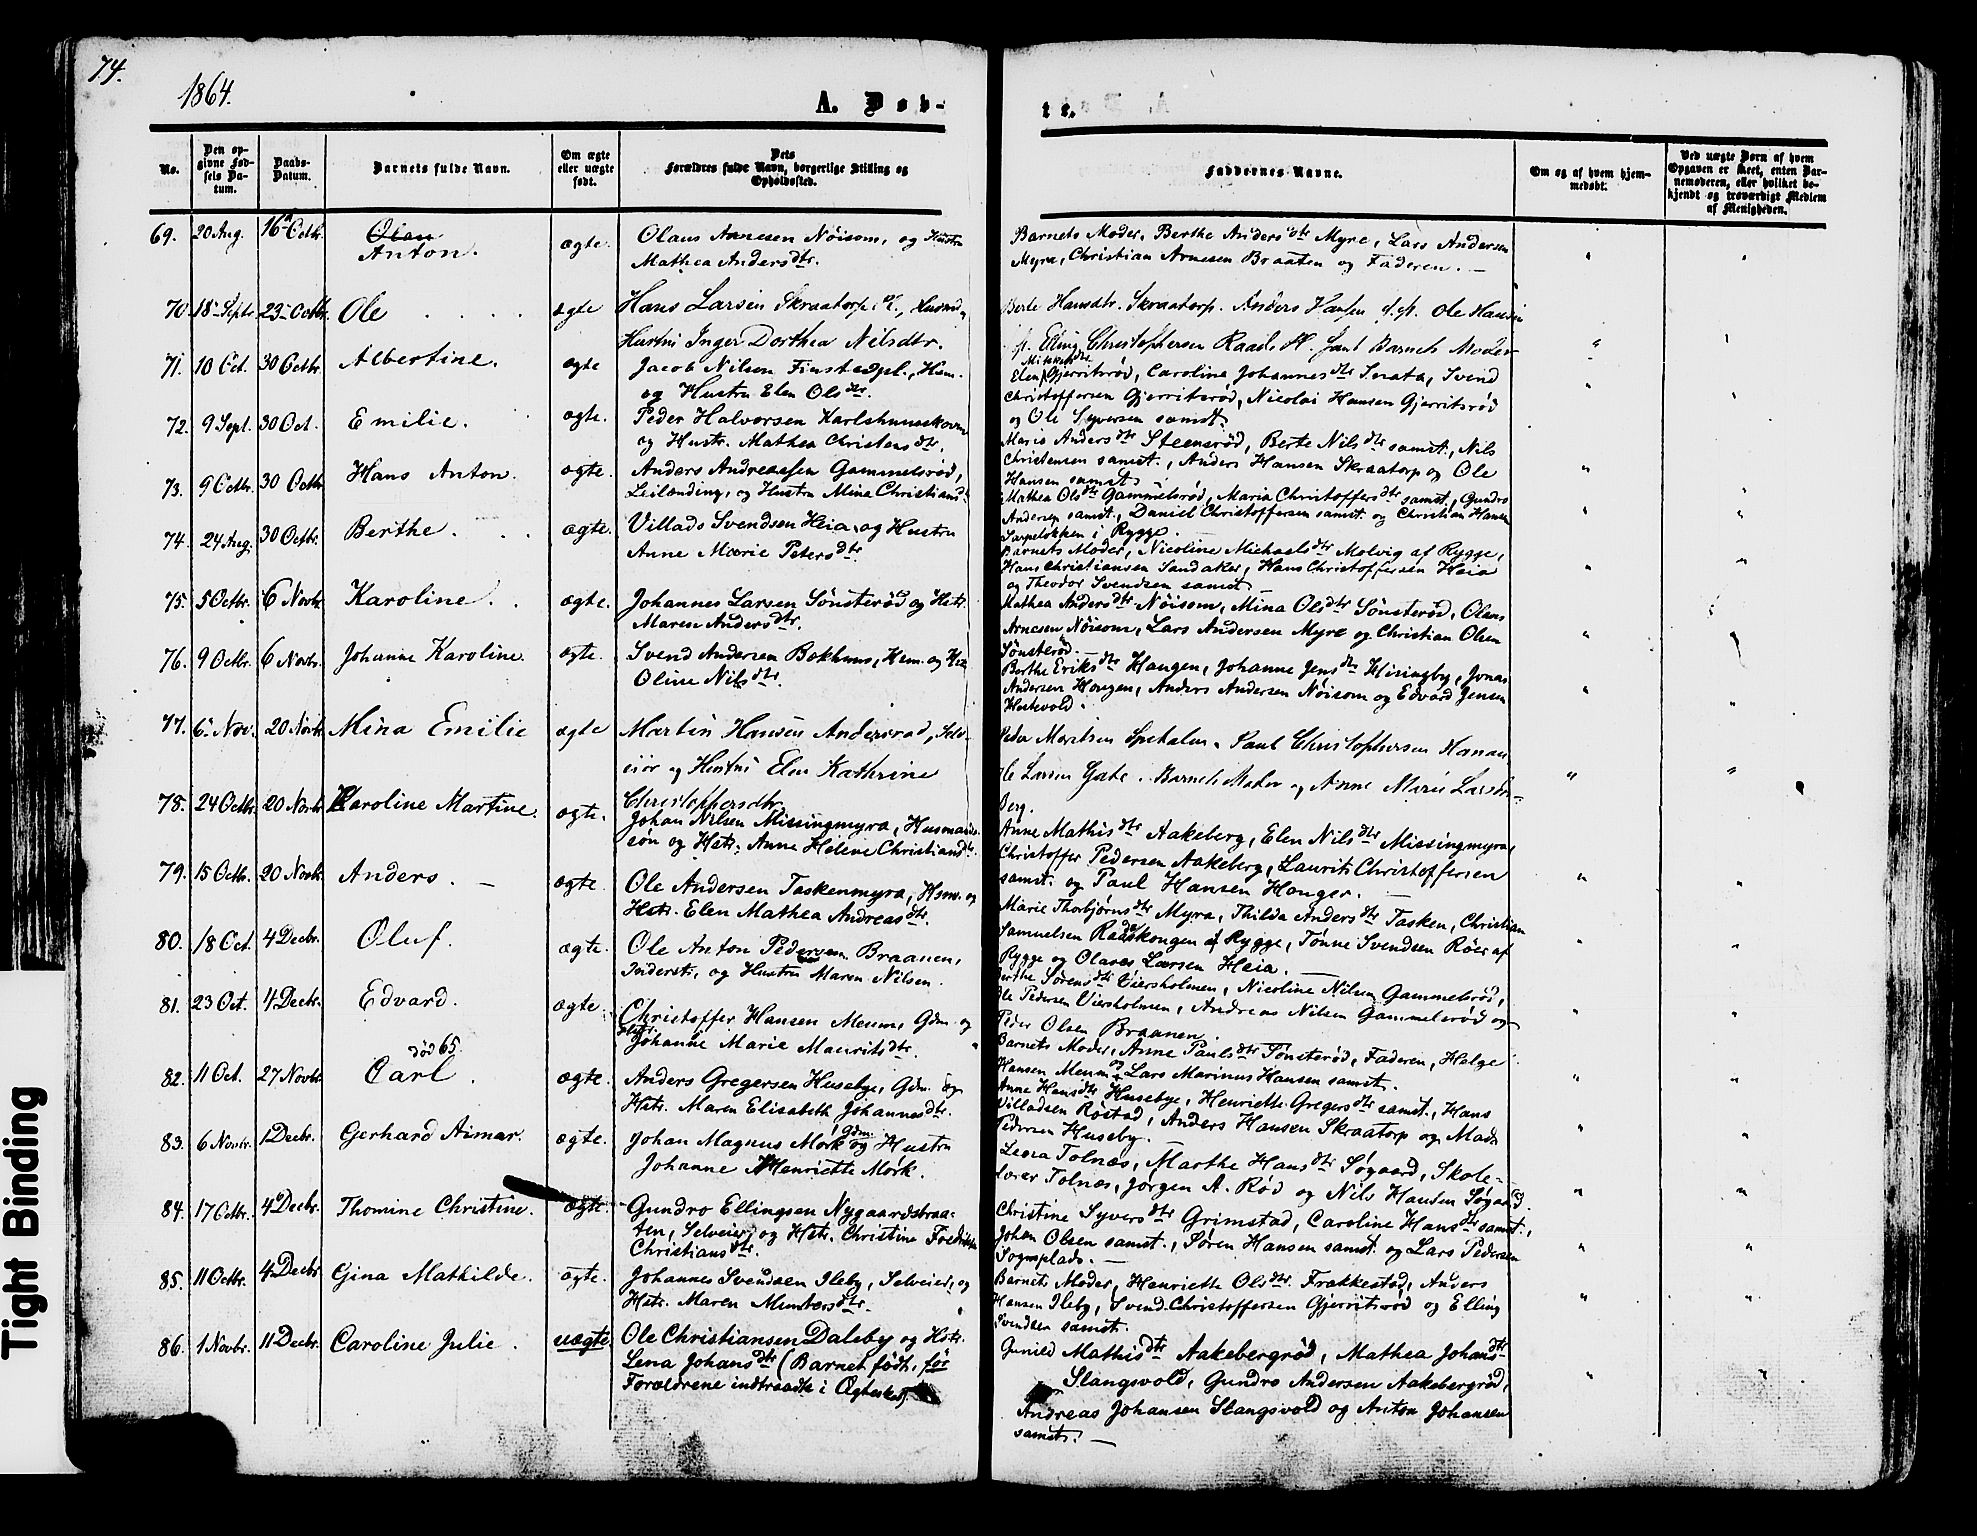 74.
1864.
A. Døb-
te.
No.
Den opgivne Fødsels Datum.
Daabs-Datum.
Barnets fulde Navn.
Om ægte eller uægte født.
Dets Forældres fulde Navn, borgerlige Stilling og Opholdssted.
Faddernes Navne.
Om og af hvem hjemmedøbt.
Ved uægte Børn af hvem Opgaven er skeet, enten Barnemoderen, eller hvilket bekjendt og troværdigt Medlem af Menigheden.
69. 20 Aug. 16 Octbr. Olau Anton. ægte. Olaus Arnesen Nöisom, og Hustru
Mathea Anders dtr.
Barnets Moder, Berthe Anders dtr Myre, Lars Andersen
Myre, Christian Arnesen Braaten og Faderen. —
70 18 Septr 23 Octbr. Ole ægte Hans Larsen Skraatorp
Hustru Inger Dorthea Nilsdtr.
Berte Hansdtr. Skraatorp. Anders Hansen Ole Hansen
Elling Christophersen Raad samt Barnets Moder
71. 10 Oct. 30 Octbr. Albertine. ægte Jacob Nilsen Finstadpl., Hsm.
og Hustru Elen Ols dtr.
Elen Mikkels dtr Gjerritsrød, Carolina Johannes dtr Snata, Svend
Christoffersen Gjerritsrød, Nicolai Hansen Gjerritsrød
og Ole Syversen samst.
72. 9 Sept. 30 Oct. Emilie. ægte. Peder Halvorsen Karlshuusskoven
og Hustr. Mathea Christens dtr.
Maria Anders dtr Steensrød, Berte Nils dtr samst., Nils
Christensen samst., Anders Hansen Skraatorp og Ole
Hansen samst.
73. 9 Octbr. 30 Octbr. Hans Anton. ægte. Anders Andreassen Gammelsrød,
Leilænding, og Hustru Mina Christians dtr
Mathea Ols dtr Gammelsrød, Maria Christoffers dtr samst., Gundro
Andersen samst., Daniel Christoffersen samst. og Christian Hansen
Sarpeløkken i Rygge.
74. 24 Aug. 30 Octbr. Berthe. ægte. Villads Svendsen Heia, og Hustru
Anne Marie Peters dtr.
Barnets Moder, Nicoline Michaels dtr Molvig af Rygge,
Hans Christiansen Sandaker, Hans Christoffersen Heia
og Theodor Svendsen samst.
75. 5 Octbr. 6 Novbr. Karoline. ægte. Johannes Larsen Sönsteröd og Hstr.
Maren Anders dtr.
Mathea Anders dtr Nöisom, Mina Ols dtr Sönsteröd, Olaus
Arnesen Nöisom, Lars Andersen Myre og Christian Olsen
Sönsteröd. —
76. 9 Octbr. 6 Novbr. Johanne Karoline. ægte. Svend Andersen Bokhuus, Hsm. og Hst
Oline Nils dtr.
Berthe Eriks dtr Haugen, Johanne Jens dtr Hisingby, Jonas
Andersen Haugen, Anders Andersen Nöisom og Edvard Jensen
Hestevold.
77. 6 Nov. 20 Novbr Mina Emilie ægte Martin Hansen Andersrød, Selv-
eier og Hustru Elen Kathrine
Christophersdtr.
Peder Moritsen Spetalen. Paul Christophersen Hanau
Ole Larsen Gate. Barnets Moder og Anne Marie Larsdtr
Berg.
78. 24 Octbr. 20 Novbr. Karoline Martine. ægte. Johan Nilsen Missingmyra, Husmands-
søn og Hstr. Anne Helene Christians dtr.
Anne Mathis dtr Aakeberg, Elen Nils dtr Missingmyra,
Christoffer Pedersen Aakeberg, Laurits Christoffersen
samst. og Paul Hansen Honger. —
79. 15 Octb. 20 Novbr. Anders. — ægte. Ole Andersen Taskenmyra, Hsm. og
Hstr. Elen Mathea Andreas dtr.
Marie Thorbjørns dtr Myra, Thilda Anders dtr Tasken, Christian
Samuelsen Raadskongen af Rygge, Tønne Svendsen Röer af
Rygge og Olaves Larsen Heia. —
80. 18 Oct. 4 Decbr. Oluf. ægte. Ole Anton Pedersen Braanen,
Inderst, og Hustru Maren Nilsen.
Berthe Sörens dtr Viersholmen, Nicoline Nilsen Gammelsröd,
Ole Pedersen Viersholmen, Andreas Nilsen Gammelsröd og
Peder Olsen Braanen.
81. 23 Oct. 4 Decbr. Edvard. ægte. Christoffer Hansen Meum, Gdm. og
Hstr. Johanne Marie Maurits dtr.
Barnets Moder, Anne Pauls dtr Sönsteröd, Faderen, Helge
Hansen Meum og Lars Marinus Hansen samst.
82. 11 Oct. 27 Novbr. død 65. Carl. ægte. Anders Gregersen Huseby, Gdm. og
Hstr. Maren Elisabeth Johannes dtr.
Anne Hans dtr Husebye, Henriette Gregers dtr samst., Hans
Villadsen Röstad, Anders Hansen Skraatorp og Mads
Pedersen Huseby. —
83. 6 Novbr. 1 Decbr. Gerhard Aimar. ægte. Johan Magnus Mørk, Gdm. og Hustru
Johanne Henriette Mørk.
Leora Tolnæs, Marthe Hans dtr Søgaard, Skole-
lærer Tolnæs, Jørgen A. Rød og Nils Hansen Søgaard.
84. 17 Octbr. 4 Decbr. Thomine Christine. ægte. Gundro Ellingsen Nygaardsbraa-
ten, Selveier, og Hstr. Christine Fredrikke
Christians dtr.
Christine Syvers dtr Grimstad, Caroline Hans dtr samst.,
Johan Olsen samst., Søren Hansen samst. og Lars Pedersen
Sogneplads. —
85. 11 Octbr. 4 Decbr Gina Mathilde. ægte. Johannes Svendsen Ileby, Selveier, og
Hstr. Maren Mentors dtr.
Barnets Moder, Henriette Ols dtr. Frakkestad, Anders
Hansen Ileby, Svend Christoffersen Gjerritsrød og Elling
Svendsen samst.
86. 1 Novbr. 11 Decbr. Caroline Julie. uægte Ole Christiansen Daleby og Hstr.
Lena Johans dtr (Barnet født, før
Forældrene indtraadte i Ægteskab)
Gunild Mathis dtr Aakebergrød, Mathea Johans dtr
Slangsvold, Gundro Andersen Aakebergrød,
Andreas Johansen Slangsvold og Anton Johansen
samst. —
Tight Binding